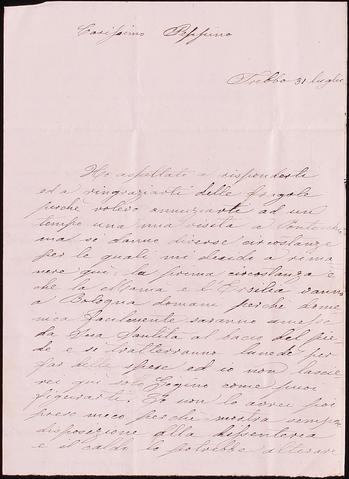 Carissimo Peppino
Trebbo 31 luglio
Ho aspettato a risponderti
ed a ringraziarti delle fragole
perchè volevo annunziarti ad un
tempo una mia visita a
ma si danno diverse circostanze
per le quali mi decido a rima
nere qui: la prima circostanza è
che la Mamà e l'Ersilia vanno
a Bologna domani perchè dome
nica facilmente saranno
da Sua Santità al bacio del pie
de e si tratterranno lunedì per
far delle spese ed io non lascie
rei qui solo Gigino come puoi
figurarti. Io non lo avrei poi
preso meco perchè mostra sempre
disposizione alla dissenteria
e il caldo lo potrebbe alterare